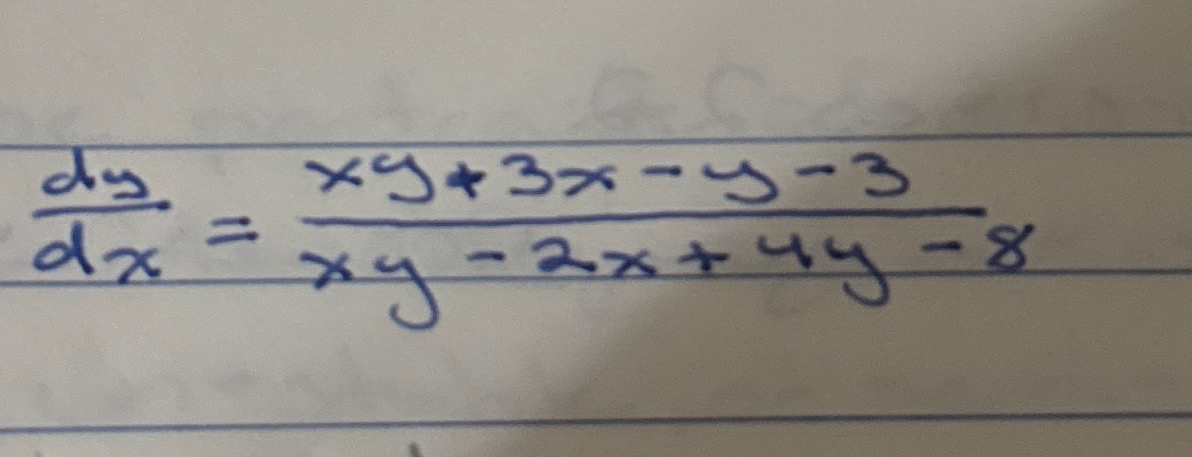 dy/dx = (xy+3x-y-3)/(xy-2x+4y-8)